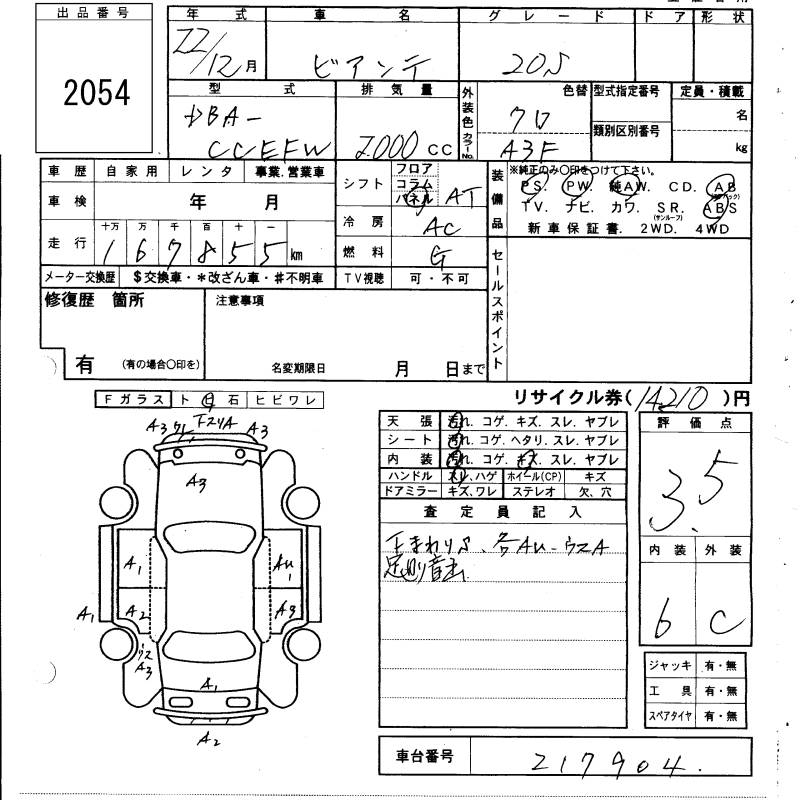 出品番号
2054
年式 車名 グレード ドア 形状
22/12月 ビアンテ 20S
型式 排気量 外装色 カラーNo. 色替 型式指定番号 定員・積載
DBA-
CCEFW 2000 CC クロ A3F 類別区別番号 名 kg
車歴 自家用 レンタ 事業.営業車
車検 年 月
走行 十万 万 千 百 十 一
167855 km
メーター交換歴 $交換車・*改ざん車・#不明車
シフト フロア コラム パネル AT
冷房 AC
燃料 G
TV視聴 可・不可
装備品 ※純正のみ○印をつけて下さい。
PS. PW. 純AW. CD. AB
TV. ナビ. カワ. SR. ABS
(サンルーフ)
新車保証書. 2WD. 4WD
セールスポイント
修復歴 箇所 注意事項
有 (有の場合○印を) 名変期限日 月 日まで
リサイクル券(14210)円
Fガラス ト 石 ヒビワレ
A3 A3
A3
A1 AU1
A1 A2 A9
ウス A3
A1
A2
天張 汚れ. コゲ. キズ. スレ. ヤブレ
シート 汚れ. コゲ. ヘタリ. スレ. ヤブレ
内装 汚れ. コゲ. キズ. スレ. ヤブレ
ハンドル スレ.ハゲ ホイール(CP) キズ
ドアミラー キズ.ワレ ステレオ 欠. 穴
査定員記入
下まわりS. 各AU-ウスA
評価点
3.5
内装 外装
6 C
ジャッキ 有・無
工具 有・無
スペアタイヤ 有・無
車台番号 217904.